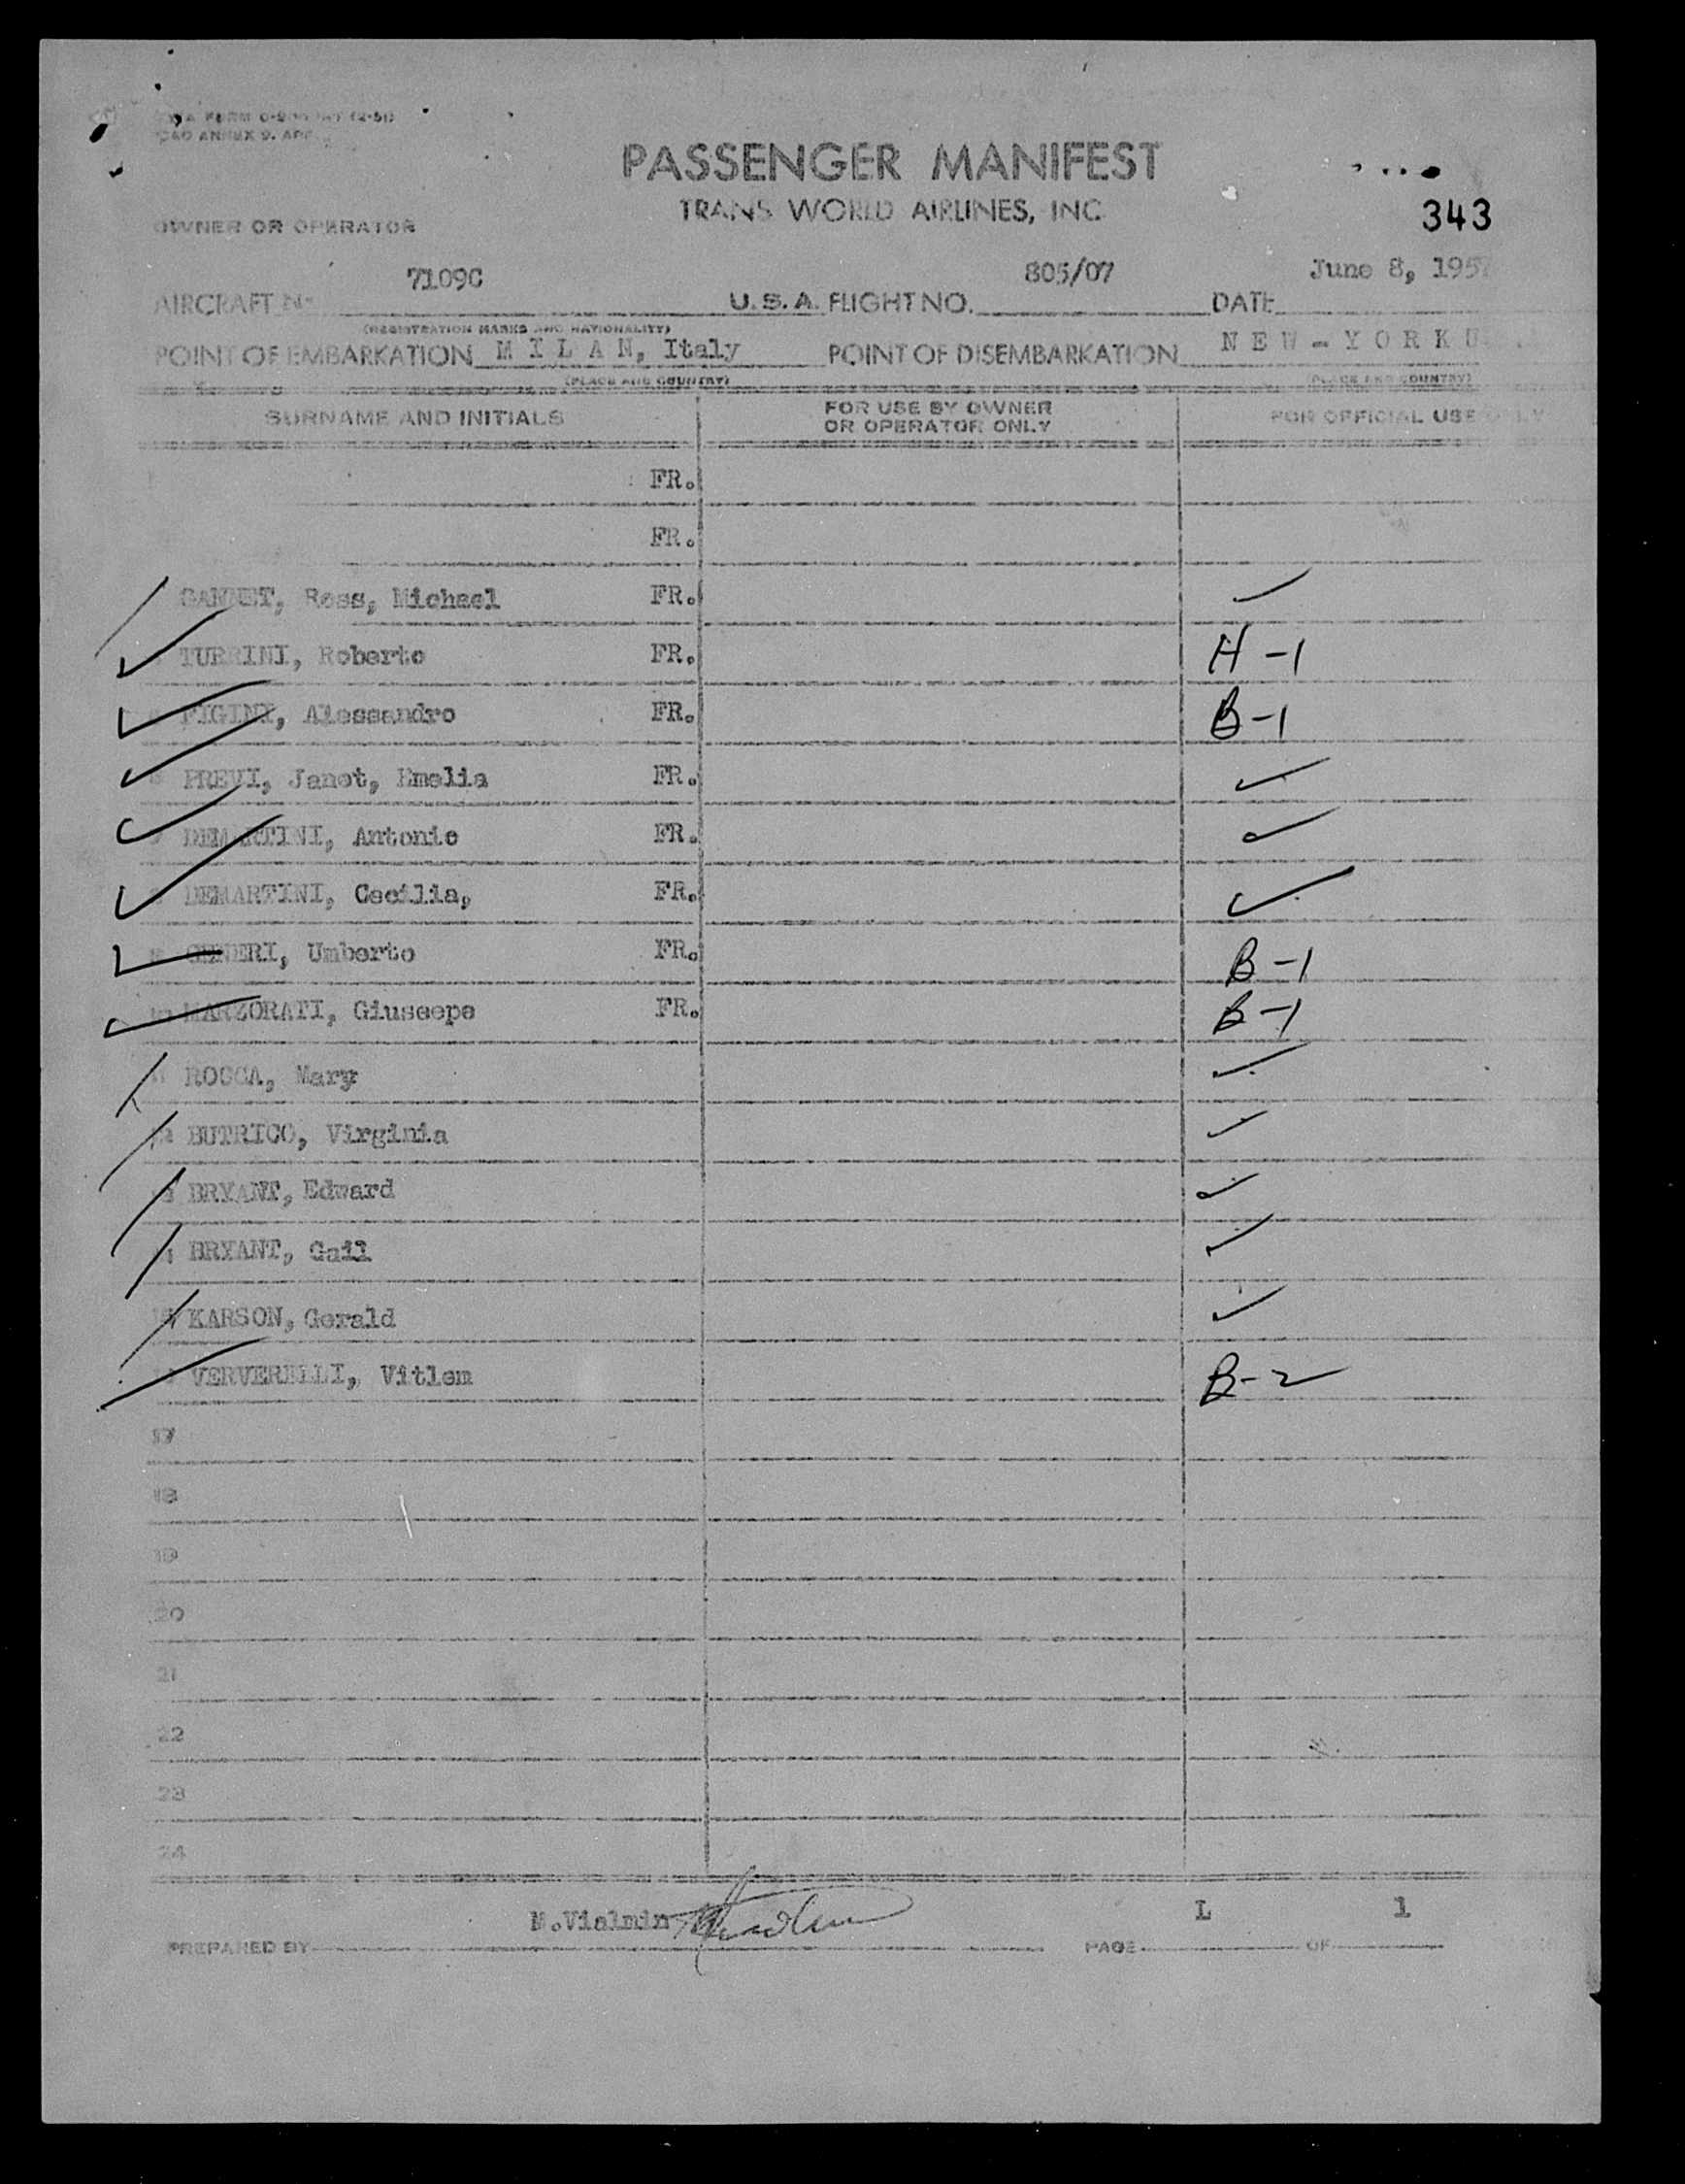 PASSENGER MANIFEST
TRANS WORLD AIRLINES, INC
343
OWNER OR OPERATOR
7109C 805/07 June 8, 1957
AIRCRAFT U.S.A. FLIGHT NO. DATE
(REGISTRATION MARKS AND NATIONALITY)
POINT OF EMBARKATION M I L A N, Italy POINT OF DISEMBARKATION N E W - Y O R K U
(PLACE AND COUNTRY) (PLACE AND COUNTRY)
SURNAME AND INITIALS FOR USE BY OWNER OR OPERATOR ONLY FOR OFFICIAL USE ONLY
FR.
FR.
Ross, Michael FR. ✓
TURRINI, Roberto FR. H-1
FIGINI, Alessandro FR. B-1
PREVI, Janet, Emelia FR. ✓
DEMARTINI, Antonio FR. ✓
DEMARTINI, Cecilia, FR. ✓
Umberto FR. B-1
MARZORATI, Giuseepe FR. B-1
ROCCA, Mary ✓
12 BUTRICO, Virginia ✓
13 BRYANT, Edward ✓
BRYANT, Gail ✓
KARSON, Gerald ✓
VERVERELLI, Vitlem B-2
17
18
19
20
21
22
23
24
M.Vialmin L 1
PREPARED BY PAGE OF